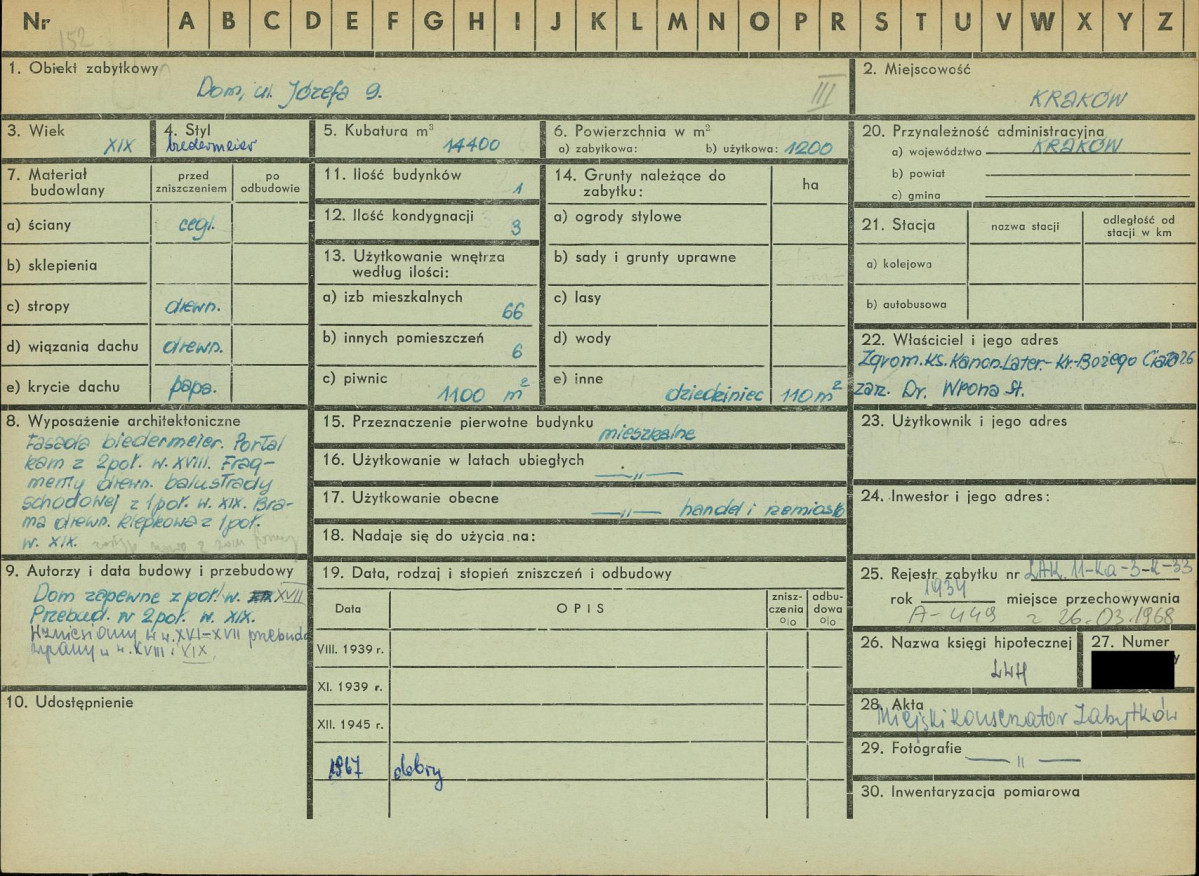 Nr 152 A B C D E F G H I J K L M N O P R S T U V W X Y Z
1. Obiekt zabytkowy
Dom, ul. Józefa 9.
III
2. Miejscowość
KRAKÓW
3. Wiek
XIX
4. Styl
biedermeier
5. Kubatura m³
14400
6. Powierzchnia w m²
a) zabytkowa: b) użytkowa: 1200
20. Przynależność administracyjna
a) województwo KRAKÓW
b) powiat
c) gmina
7. Materiał budowlany
przed zniszczeniem
po odbudowie
a) ściany cegl.
b) sklepienia
c) stropy drewn.
d) wiązania dachu drewn.
e) krycie dachu papa.
11. Ilość budynków
1
12. Ilość kondygnacji
3
13. Użytkowanie wnętrza
według ilości:
a) izb mieszkalnych
66
b) innych pomieszczeń
6
c) piwnic
1100 m²
14. Grunty należące do
zabytku:
ha
a) ogrody stylowe
b) sady i grunty uprawne
c) lasy
d) wody
e) inne
dziedziniec 110 m²
21. Stacja
nazwa stacji
odległość od
stacji w km
a) kolejowa
b) autobusowa
22. Właściciel i jego adres
Zgrom. Ks. Kanon. Later.- Kr. Bożego Ciała 26
zarz. Dr. Wrona St.
8. Wyposażenie architektoniczne
Fasada biedermeier. Portal
kam z 2 poł. w. XVIII. Frag-
menty drewn. balustrady
schodowej z 1 poł. w. XIX. Bra-
ma drewn. klepkowa z 1 poł.
w. XIX.
15. Przeznaczenie pierwotne budynku
mieszkalne
16. Użytkowanie w latach ubiegłych
—"—
17. Użytkowanie obecne
—"— handel i rzemiosło
18. Nadaje się do użycia na:
23. Użytkownik i jego adres
24. Inwestor i jego adres:
9. Autorzy i data budowy i przebudowy
Dom zapewne z poł. w. XVII
Przebud. w 2 poł. w. XIX.
Wzniesiony w w. XVI-XVII przebudo
wany w w. XVIII i XIX
10. Udostępnienie
19. Data, rodzaj i stopień zniszczeń i odbudowy
Data
OPIS
znisz-
czenia
%
odbu-
dowa
%
VIII. 1939 r.
XI. 1939 r.
XII. 1945 r.
1967 dobry
25. Rejestr zabytku nr LAK. 11-Ka-3-K-33
rok 1934 miejsce przechowywania
A-449 z 26.03.1968
26. Nazwa księgi hipotecznej
LWH
27. Numer
28. Akta
Miejski Konserwator Zabytków
29. Fotografie
—"—
30. Inwentaryzacja pomiarowa